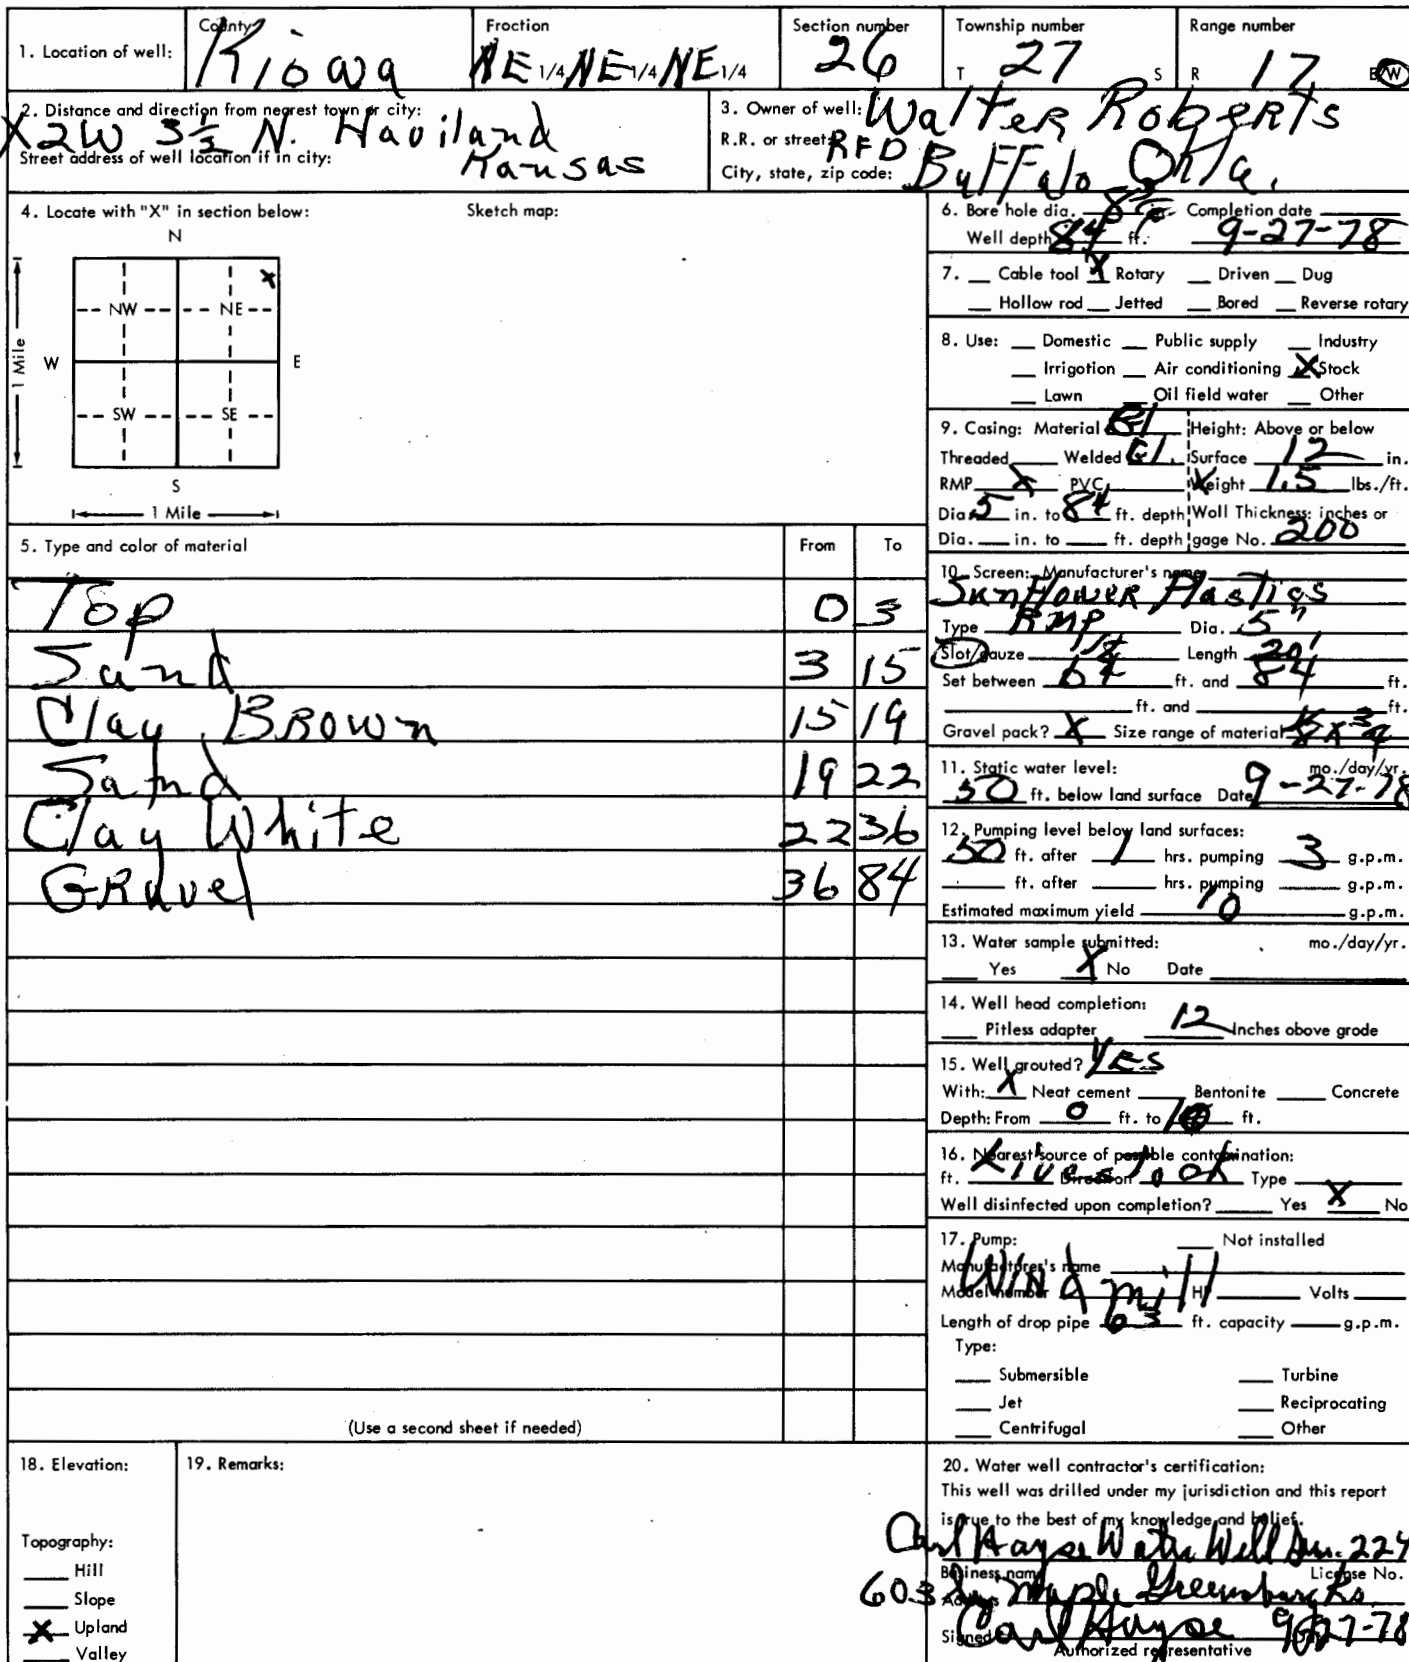 1. Location of well: County Kiowa Froction NE 1/4 NE 1/4 NE 1/4 Section number 26 Township number T 27 S Range number R 17 E/W
2. Distance and direction from nearest town or city:
X2W 3½ N. Haviland
Street address of well location if in city: Kansas
3. Owner of well: Walter Roberts
R.R. or street: RFD
City, state, zip code: Buffalo Okla.
4. Locate with "X" in section below: Sketch map:
N
X
NW NE
W E
1 Mile
SW SE
S
1 Mile
5. Type and color of material From To
Top 0 3
Sand 3 15
Clay Brown 15 19
Sand 19 22
Clay White 22 36
Gravel 36 84
(Use a second sheet if needed)
6. Bore hole dia. 8 Completion date
Well depth 84 ft. 9-27-78
7. Cable tool X Rotary Driven Dug
Hollow rod Jetted Bored Reverse rotary
8. Use: Domestic Public supply Industry
Irrigation Air conditioning X Stock
Lawn Oil field water Other
9. Casing: Material Height: Above or below
Threaded Welded Gl. Surface 12 in.
RMP X PVC Weight 1.5 lbs./ft.
Dia. 5 in. to 84 ft. depth Woll Thickness: inches or
Dia. in. to ft. depth gage No. 200
10. Screen: Manufacturer's name
Sunflower Plastics
Type RMP Dia. 5"
Slot/gauze Length 20'
Set between 64 ft. and 84 ft.
ft. and ft.
Gravel pack? X Size range of material
11. Static water level: mo./day/yr.
50 ft. below land surface Date 9-27-78
12. Pumping level below land surfaces:
50 ft. after 1 hrs. pumping 3 g.p.m.
ft. after hrs. pumping g.p.m.
Estimated maximum yield 10 g.p.m.
13. Water sample submitted: mo./day/yr.
Yes X No Date
14. Well head completion:
Pitless adapter 12 Inches obove grode
15. Well grouted? Yes
With: X Neat cement Bentonite Concrete
Depth: From 0 ft. to 10 ft.
16. Nearest source of possible contamination:
ft. Livestock Direction Type
Well disinfected upon completion? Yes X No
17. Pump: Not installed
Manufacturer's name
Wind mill
Model number HP Volts
Length of drop pipe 63 ft. capacity g.p.m.
Type:
Submersible Turbine
Jet Reciprocating
Centrifugal Other
18. Elevation:
Topography:
Hill
Slope
X Upland
Valley
19. Remarks:
20. Water well contractor's certification:
This well was drilled under my jurisdiction and this report
is true to the best of my knowledge and belief.
Carl Hayse Water Well 224
Business name License No.
603 Maple Greensburg Ks.
Address
Signed Carl Hayse 9-27-78
Authorized representative